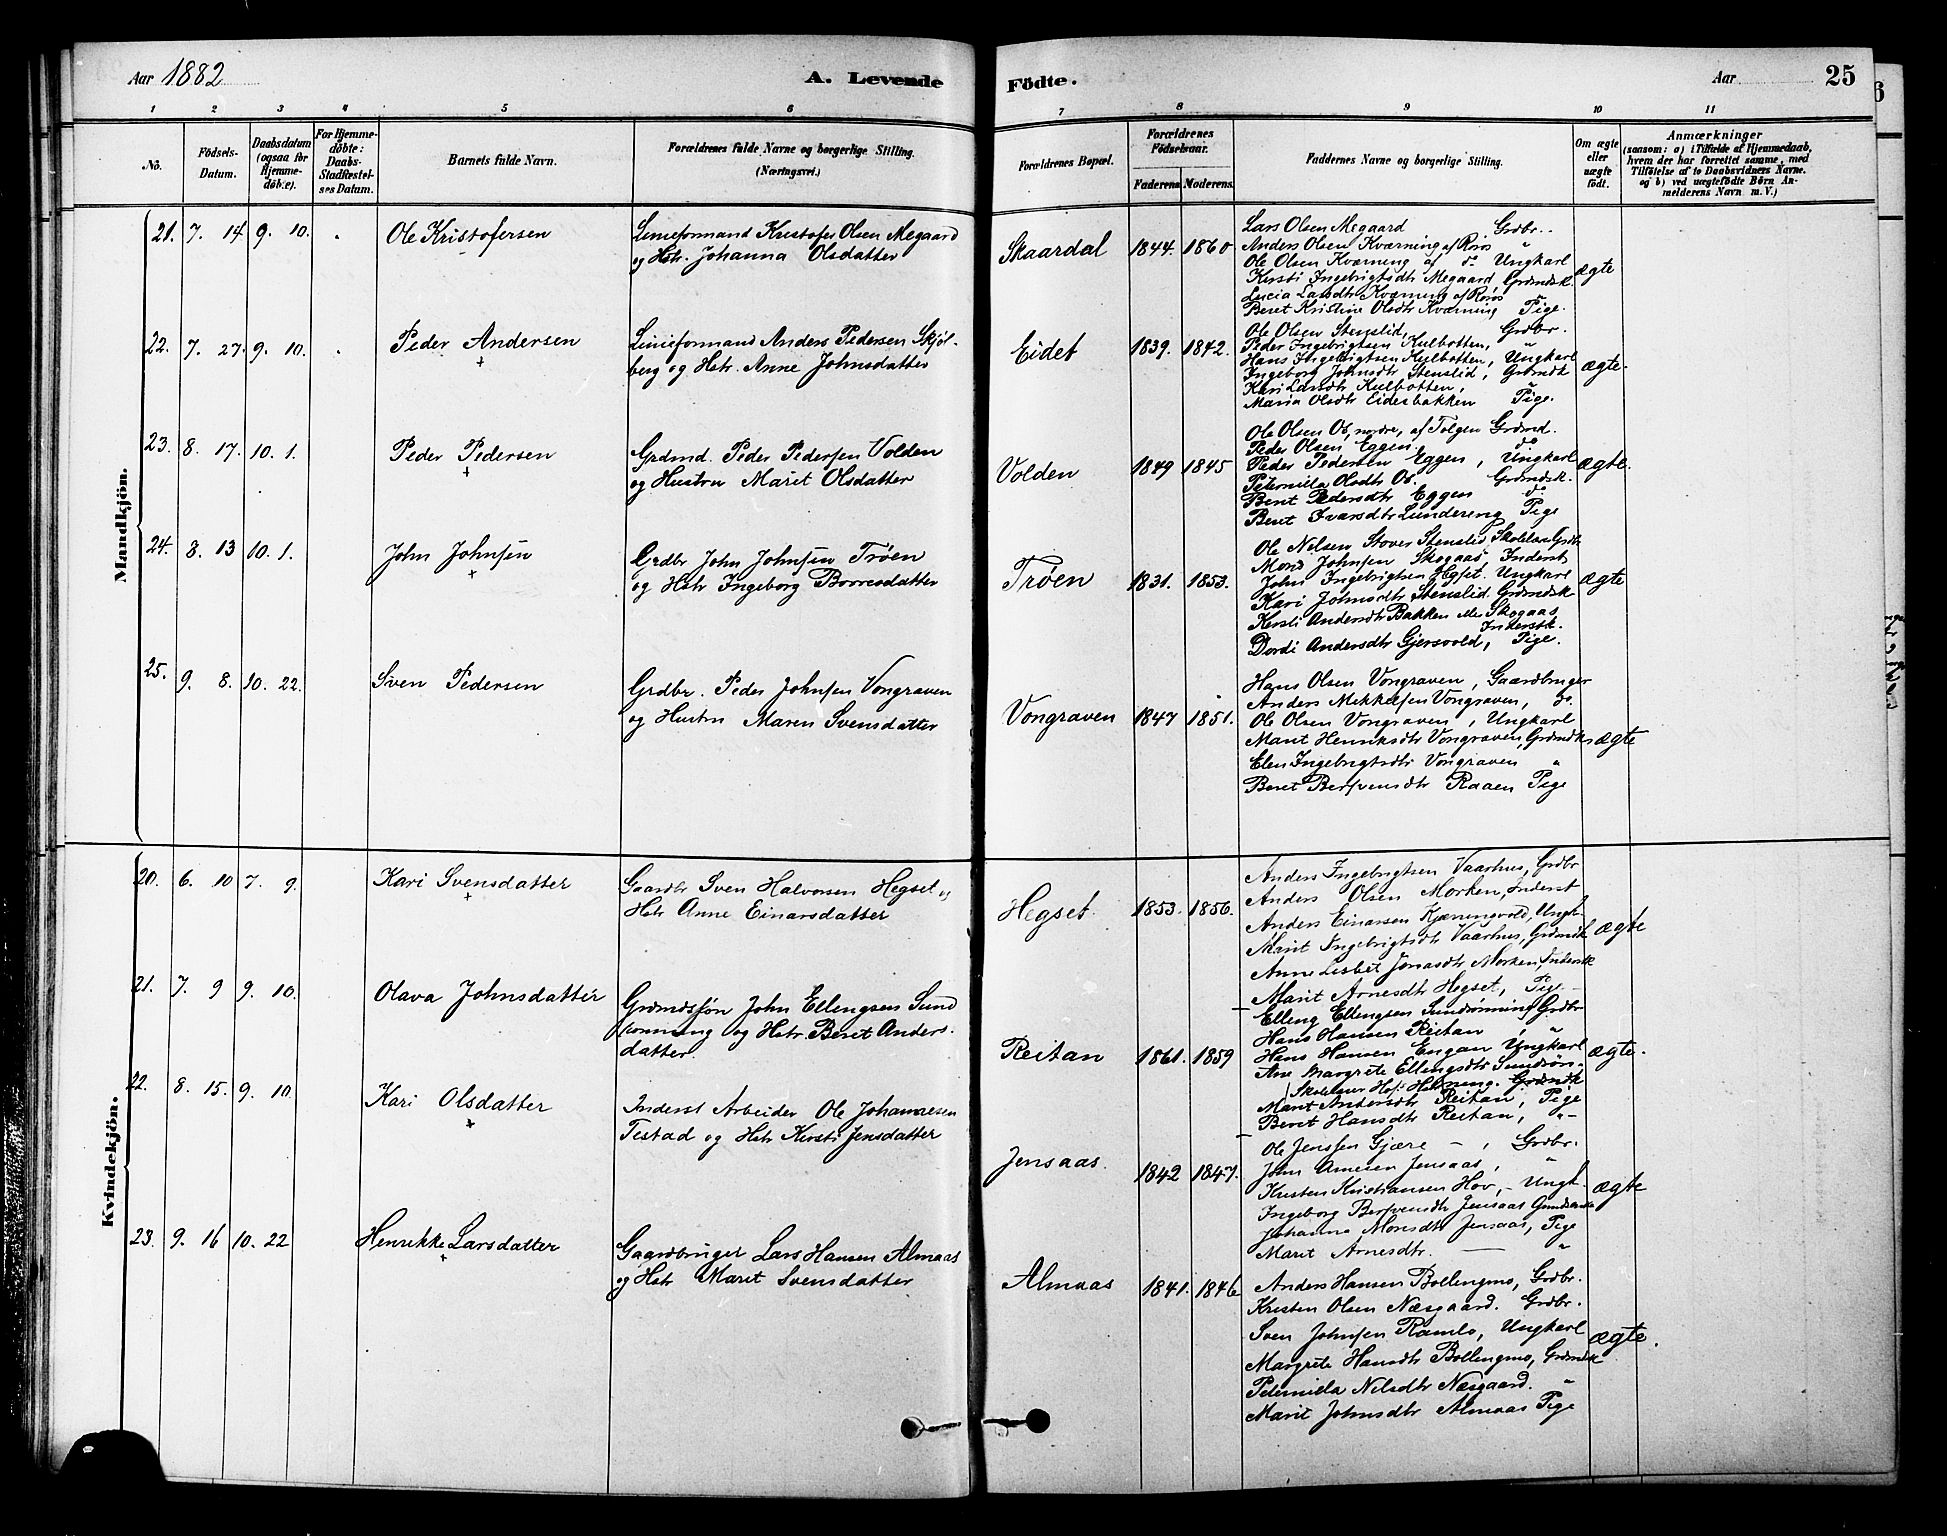 Aar 1882
A. Levende
Födte.
Aar
25
1 2 3 4 5 6 7 8 9 10 11
No.
Födsels-
Datum.
Daabsdatum
(ogsaa for
Hjemme-
döbte).
For Hjemme-
döbte:
Daabs-
Stadfæstel-
ses Datum.
Barnets fulde Navn.
Forældrenes fulde Navne og borgerlige Stilling.
(Næringsvei.)
Forældrenes Bopæl.
Forældrenes
Födselsaar.
Faderens Moderens.
Faddernes Navne og borgerlige Stilling.
Om ægte
eller
uægte
födt.
Anmærkninger
(saasom: a) i Tilfælde af Hjemmedaab,
hvem der har forrettet samme, med
Tilföielse af to Daabsvidners Navne.
og b) ved uægtefödte Börn An-
melderens Navn m. V.)
Mandkjön.
21. 7. 14 9. 10.
Ole Kristofersen
Linieformand Kristofer Olsen Megaard
og Hstr. Johanna Olsdatter
Skaardal 1844. 1860
Lars Olsen Megaard Grdbr.
Anders Olsen Kværning af Röros "
Ole Olsen Kværneng af do Ungkarl
Kersti Ingebrigtsdtr Megaard, Grdmdsk.
Lucia Larsdtr Kværneng af Röros
Beret Kristine Olsdtr Kværning Pige.
ægte
22. 7. 27. 9. 10.
Peder Andersen
Linieformand Anders Pedersen Skjöl-
berg og Hstr. Anne Johnsdatter
Eidet 1839. 1842.
Ole Olsen Stenslid, Grdbr.
Peder Ingebrigtsen Kulbotten, "
Hans Ingebrigtsen Kulbotten, Ungkarl
Ingeborg Johnsdtr Stenslid, Grdmdk
Kari Larsdtr Kulbotten, "
Maria Olsdtr Eidesbakken Pige.
ægte.
23. 8. 17. 10. 1.
Peder Pedersen
Grdmd. Peder Pedersen Volden
og Hustru Marit Olsdatter
Volden 1849 1845
Ole Olsen Os, nordre, af Tolgen Grdmd.
Peder Olsen Eggen. do
Peder Pedersen Eggen, Ungkarl
Peternilla Olsdtr Os. Grdmdsk.
Berit Pedersdtr Eggen do.
Beret Ivarsdtr Lundereng Pige
ægte.
24. 8. 13 10. 1.
John Johnsen
Grdbr John Johnsen Tröen
og Hstr Ingeborg Borresdatter
Tröen 1831. 1853.
Ole Nilsen Stover Stenslid Skolelær. Grdbr
Mons Johnsen Skogaas Inderst
John Ingebrigtsen Hegset. Ungkarl
Kari Johnsdtr Stenslid Grdmdsk
Kersti Andersdtr Bakken eller Skogaas
Inderstk.
Dordi Andersdtr Gjersvold, Pige.
ægte
25. 9. 8. 10. 22.
Sven Pedersen
Grdbr. Peder Johnsen Vongraven
og Hustru Maren Svensdatter
Vongraven 1847 1851.
Hans Olsen Vongraven, Gaardbruger
Anders Mikkelsen Vongraven, do.
Ole Olsen Vongraven, Ungkarl
Marit Henriksdtr Vongraven, Grdmdk
Elen Ingebrigtsdtr Vongraven "
Beret Bersvendsdtr Raaen Pige
ægte
Kvindekjön.
20. 6. 10 7. 9.
Kari Svensdatter
Gaardbr Sven Halvorsen Hegset og
Hstr Anne Einarsdatter
Hegset. 1853. 1856.
Anders Ingebrigtsen Vaarhus, Grdbr
Anders Olsen Morken, Inderst
Anders Einarsen Kjæringvold, Ungk.
Marit Ingebrigtsdtr Vaarhus, Grdmdk
Anne Lisbet Jonasdtr Morken, Inderstk
Marit Arnesdtr Hegset, Pige.
ægte
21. 7. 9 9. 10.
Olava Johnsdatter
Grdmdssön John Ellengsen Sund
rönning og Hstr. Beret Anders-
datter.
Reitan 1861. 1859
Elleng Ellengsen Sundrönning Grdbr
Hans Hansen Reitan "
Hans Hansen Engan Ungkarl
Ane Margrete Ellengsdtr Sundrön-
Marit Andersdtr Reitan, Pige
Beret Hansdtr Reitan, "
ægte.
22. 8. 15. 9. 10
Kari Olsdatter
Inderst Arbeider Ole Johannesen
Testad og Hstr Kersti Jensdatter
Jensaas. 1842 1847.
Ole Jenssen Gjære, Grdbr.
John Arnesen Jensaas, "
Kristen Kristiansen Hov, Ungk.
Ingeborg Bersvendsdtr Jensaas
Johanna Monsdtr Jensaas, Pige
Marit Arnesdtr. — "
ægte
23. 9. 16 10. 22
Henrikke Larsdatter
Gaardbruger Lars Hansen Almaas
og Hstr Marit Svensdatter
Almaas 1841. 1846
Anders Hansen Bollingmo, Grdbr.
Kristen Olsen Næsgaard. Grdbr.
Sven Johnsen Ramlo, Ungkarl
Margrete Hansdtr Bollengmo, Grdmdk.
Peternilla Nilsdtr Næsgaard. "
Marit Johnsdtr Almaas Pige
ægte.